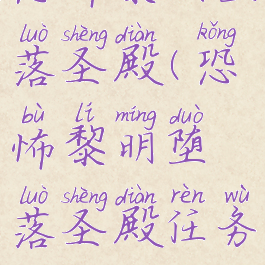 luò shèng diàn kǒng
落圣殿(恐
bù lí míng duò
怖黎明堕
luò shèng diàn rèn wù
落圣殿任务